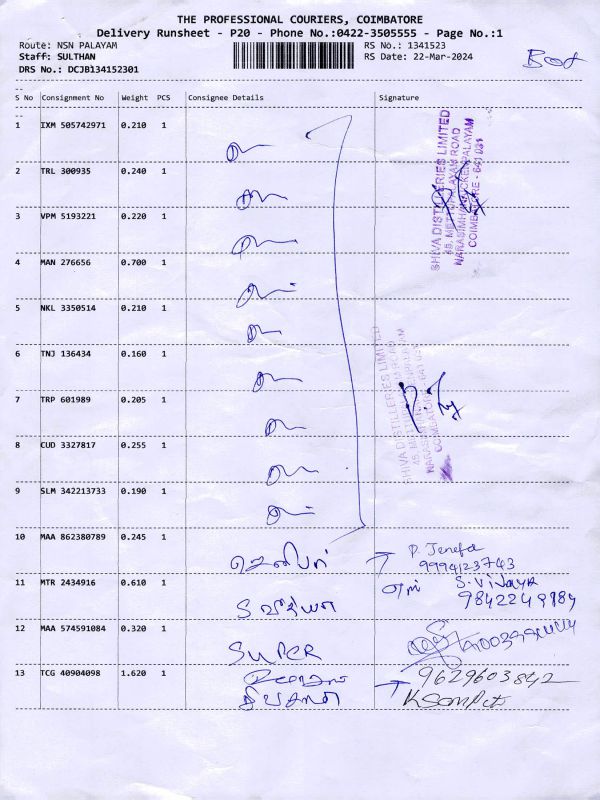 THE PROFESSIONAL COURIERS, COIMBATORE
Delivery Runsheet - P20 - Phone No.:0422-3505555 - Page No.:1
Route: NSN PALAYAM
RS No.: 1341523
Staff: SULTHAN
RS Date: 22-Mar-2024
DRS No.: DCJB134152301
--
S No Consignment No Weight PCS Consignee Details Signature
--
1 IXM 505742971 0.210 1
SHIVA DISTILLERIES LIMITED
COIMBATORE - 641 031
2 TRL 300935 0.240 1
3 VPM 5193221 0.220 1
4 MAN 276656 0.700 1
5 NKL 3350514 0.210 1
6 TNJ 136434 0.160 1
SHIVA DISTILLERIES LIMITED
7 TRP 601989 0.205 1
8 CUD 3327817 0.255 1
9 SLM 342213733 0.190 1
10 MAA 862380789 0.245 1
ஜெனிபர் P. Jenefa
9994123743
11 MTR 2434916 0.610 1
S வித்யா S. Vijaya
9842249984
12 MAA 574591084 0.320 1
SUPER
13 TCG 40904098 1.620 1
9629603842